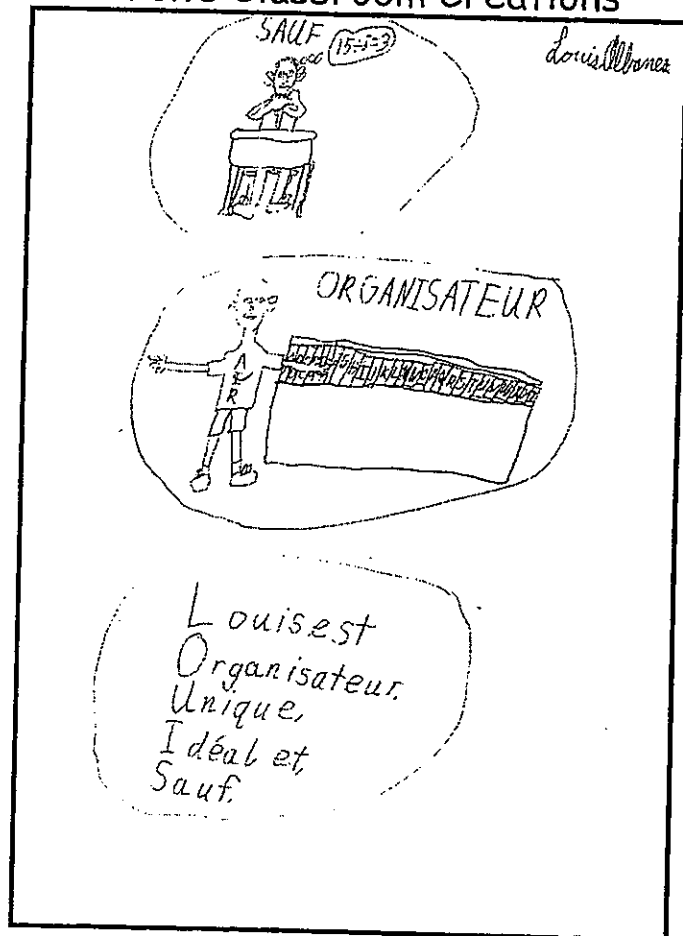 Classroom Creations
SAUF
15÷5=3
Louis Albanez
ORGANISATEUR
A
&
R
Louis est
Organisateur,
Unique,
Idéal et,
Sauf.